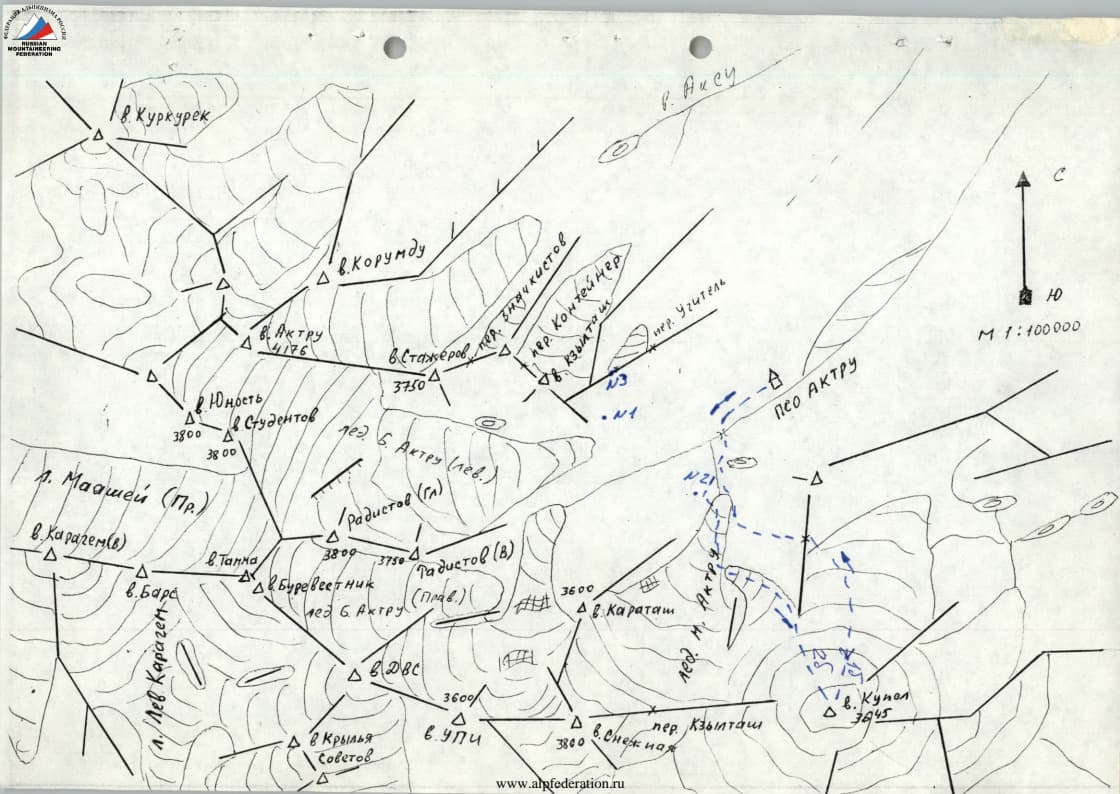 ФЕДЕРАЦИЯ АЛЬПИНИЗМА РОССИИ
RUSSIAN
MOUNTAINEERING
FEDERATION
р. Аксу
в. Куркурек
С
Ю
М 1:100000
в. Корумду
пер. Значкистов
пер. Контейнер
в. Кзылташ
пер. Учитель
в. Актру
4176
в. Стажёров
3750
N3
N1
ПСО АКТРУ
в. Юность
3800
в. Студентов
3800
лед. Б. Актру (лев.)
N21
л. Маашей (Пр.)
Радистов (Гл)
3800
3750
Радистов (В)
в. Карагем(в)
в. Барс
в. Тамма
в. Буревестник
лед Б. Актру
(Прав.)
3600
в. Караташ
лед. М. Актру
л. Лев Карагем
в ДВС
3600
в. УПИ
в. Снежная
3800
пер. Кзылташ
в. Купол
3645
в Крылья
Советов
www.alpfederation.ru